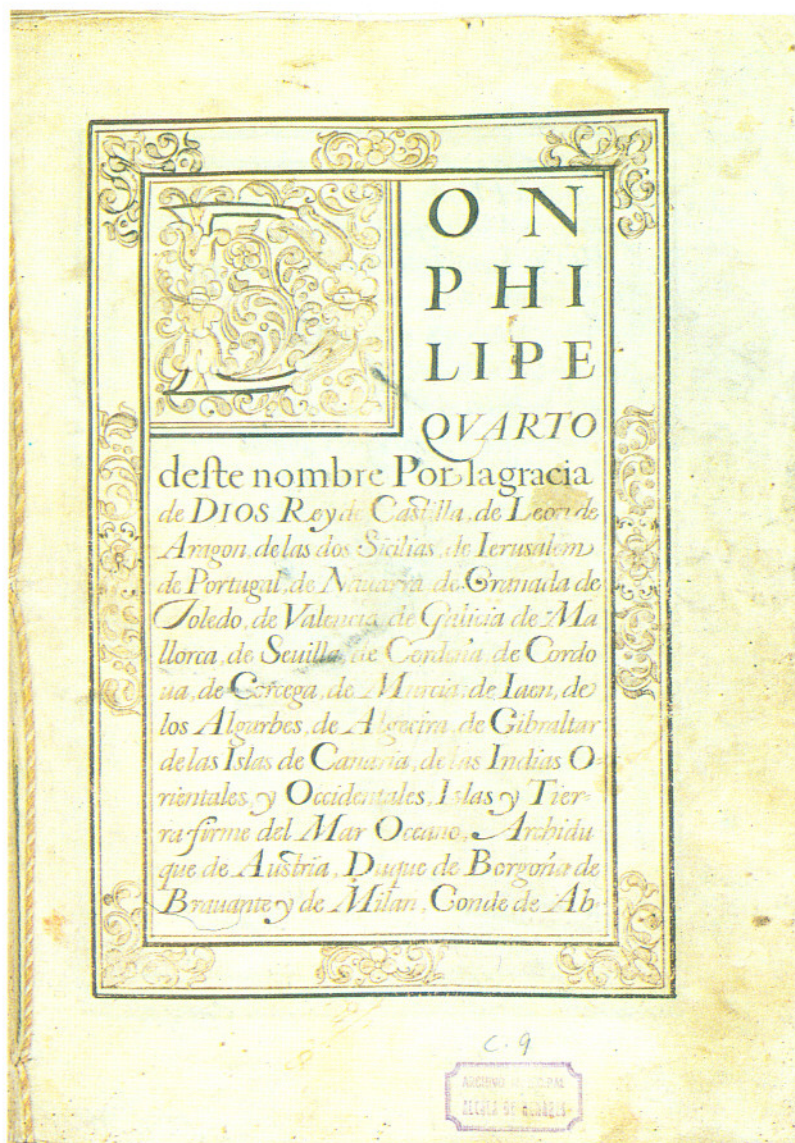 DON
PHI
LIPE
QVARTO
deste nombre Por la gracia
de DIOS Rey de Castilla, de Leon de
Aragon, de las dos Sicilias, de Ierusalem
de Portugal, de Nauarra, de Granada de
Toledo, de Valencia, de Galicia de Ma
llorca, de Seuilla, de Cerdeña, de Cordo
ua, de Corcega, de Murcia, de Iaen, de
los Algarbes, de Algecira, de Gibraltar
de las Islas de Canaria, de las Indias O-
rientales, y Occidentales, Islas y Tier-
ra firme del Mar Oceano, Archidu
que de Austria, Duque de Borgoña de
Brauante y de Milan, Conde de Ab-
C. 9
ARCHIVO MUNICIPAL
ALCALA DE HENARES